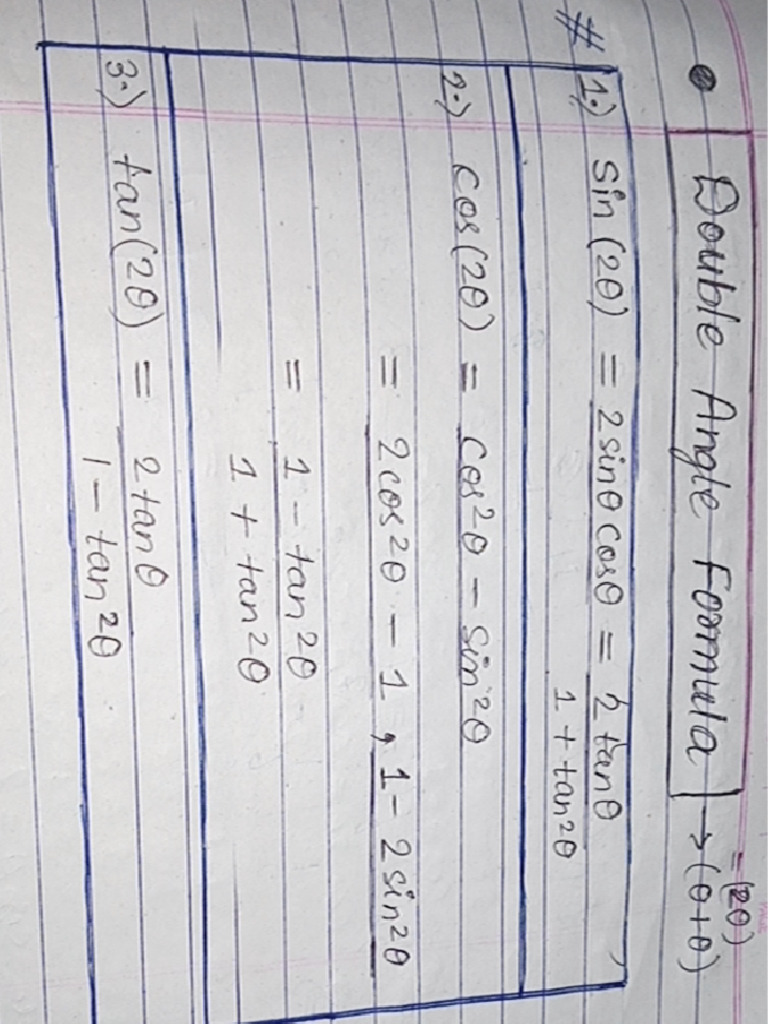 = (2θ)
• Double Angle Formula → (θ+θ)
# 1.) sin (2θ) = 2sinθ cosθ = 2 tanθ / 1 + tan²θ
2.) cos(2θ) = cos²θ - sin²θ
= 2cos²θ - 1 , 1 - 2sin²θ
= 1 - tan²θ / 1 + tan²θ
3.) tan(2θ) = 2tanθ / 1 - tan²θ